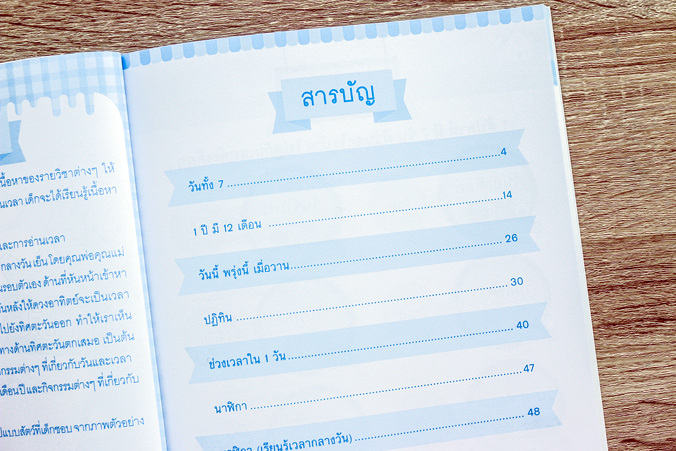 นื้อหาของรายวิชาต่างๆ ให้
นเวลา เด็กจะได้เรียนรู้เนื้อหา
และการอ่านเวลา
กลางวัน เย็น โดยคุณพ่อคุณแม่
นรอบตัวเอง ด้านที่หันหน้าเข้าหา
ันหลังให้ดวงอาทิตย์จะเป็นเวลา
ไปยังทิศตะวันออก ทำให้เราเห็น
ทางด้านทิศตะวันตกเสมอ เป็นต้น
กรรมต่างๆ ที่เกี่ยวกับวันและเวลา
เดือนปี และกิจกรรมต่างๆ ที่เกี่ยวกับ
ปแบบสัตว์ที่เด็กชอบ จากภาพตัวอย่าง
สารบัญ
วันทั้ง 7 ........ 4
1 ปี มี 12 เดือน ........ 14
วันนี้ พรุ่งนี้ เมื่อวาน ........ 26
ปฏิทิน ........ 30
ช่วงเวลาใน 1 วัน ........ 40
นาฬิกา ........ 47
นาฬิกา (เรียนรู้เวลากลางวัน) ........ 48